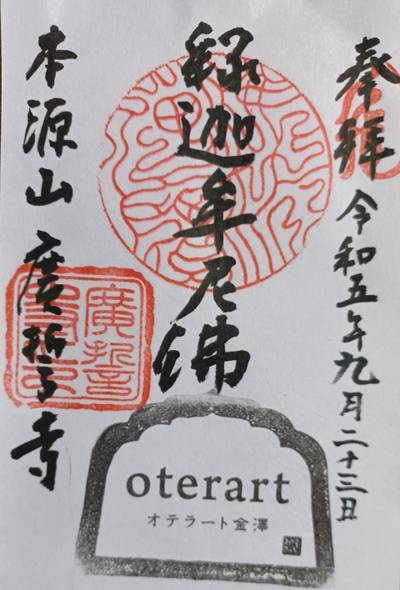 奉拝 令和五年九月二十三日
釈迦牟尼佛
本源山 廣誓寺
oterart
オテラート金澤